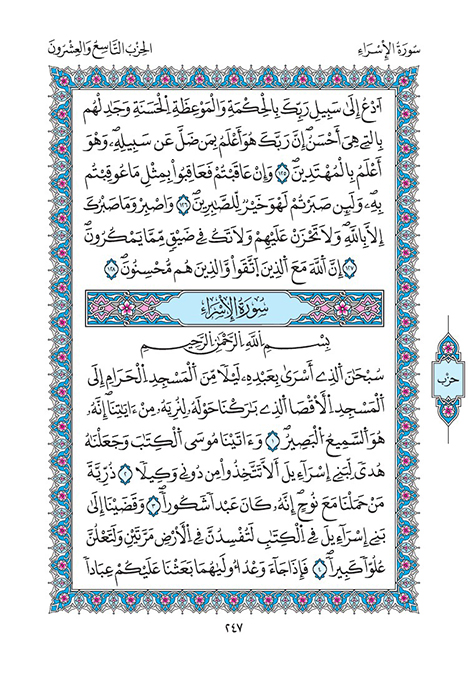 سُورَةُ الإِسْرَاءِ
الحِزْبُ التَّاسِعُ وَالعِشْرُونَ
اَ۟دْعُ إِلَىٰ سَبِيلِ رَبِّكَ بِالْحِكْمَةِ وَالْمَوْعِظَةِ اِ۬لْحَسَنَةِ وَجَٰدِلْهُم
بِالتِے هِيَ أَحْسَنُۖ إِنَّ رَبَّكَ هُوَ أَعْلَمُ بِمَن ضَلَّ عَن سَبِيلِهِۦۖ وَهُوَ
أَعْلَمُ بِالْمُهْتَدِينَۖ ١٢٥ وَإِنْ عَاقَبْتُمْ فَعَاقِبُوا۟ بِمِثْلِ مَا عُوقِبْتُم
بِهِۦۖ وَلَئِن صَبَرْتُمْ لَهُوَ خَيْرٌ لِّلصَّٰبِرِينَۖ ١٢٦ وَاصْبِرْ وَمَا صَبْرُكَ
إِلَّا بِاللَّهِۖ وَلَا تَحْزَنْ عَلَيْهِمْ وَلَا تَكُ فِے ضَيْقٍ مِّمَّا يَمْكُرُونَۖ
١٢٧ إِنَّ اَ۬للَّهَ مَعَ اَ۬لذِينَ اَ۪تَّقَوا۟ وَّالذِينَ هُم مُّحْسِنُونَۖ ١٢٨
سُورَةُ الإِسْرَاءِ
بِسْمِ اللَّهِ الرَّحْمَٰنِ الرَّحِيمِ
سُبْحَٰنَ اَ۬لذِےٓ أَسْرَىٰ بِعَبْدِهِۦ لَيْلًا مِّنَ اَ۬لْمَسْجِدِ اِ۬لْحَرَامِ إِلَى
اَ۬لْمَسْجِدِ اِ۬لْأَقْصَا اَ۬لذِے بَٰرَكْنَا حَوْلَهُۥ لِنُرِيَهُۥ مِنْ ءَايَٰتِنَاۖ إِنَّهُۥ
هُوَ اَ۬لسَّمِيعُ اُ۬لْبَصِيرُۖ ١ وَءَاتَيْنَا مُوسَى اَ۬لْكِتَٰبَ وَجَعَلْنَٰهُ
هُدًى لِّبَنِےٓ إِسْرَآءِيلَ أَلَّا تَتَّخِذُوا۟ مِن دُونِے وَكِيلًاۖ ٢ ذُرِّيَّةَ
مَنْ حَمَلْنَا مَعَ نُوحٍۖ إِنَّهُۥ كَانَ عَبْدًا شَكُورًاۖ ٣ وَقَضَيْنَآ إِلَىٰ
بَنِےٓ إِسْرَآءِيلَ فِے اِ۬لْكِتَٰبِ لَتُفْسِدُنَّ فِے اِ۬لْأَرْضِ مَرَّتَيْنِ وَلَتَعْلُنَّ
عُلُوًّا كَبِيرًاۖ ٤ فَإِذَا جَآءَ وَعْدُ أُولَىٰهُمَا بَعَثْنَا عَلَيْكُمْ عِبَادًا
حِزْب
٢٤٧